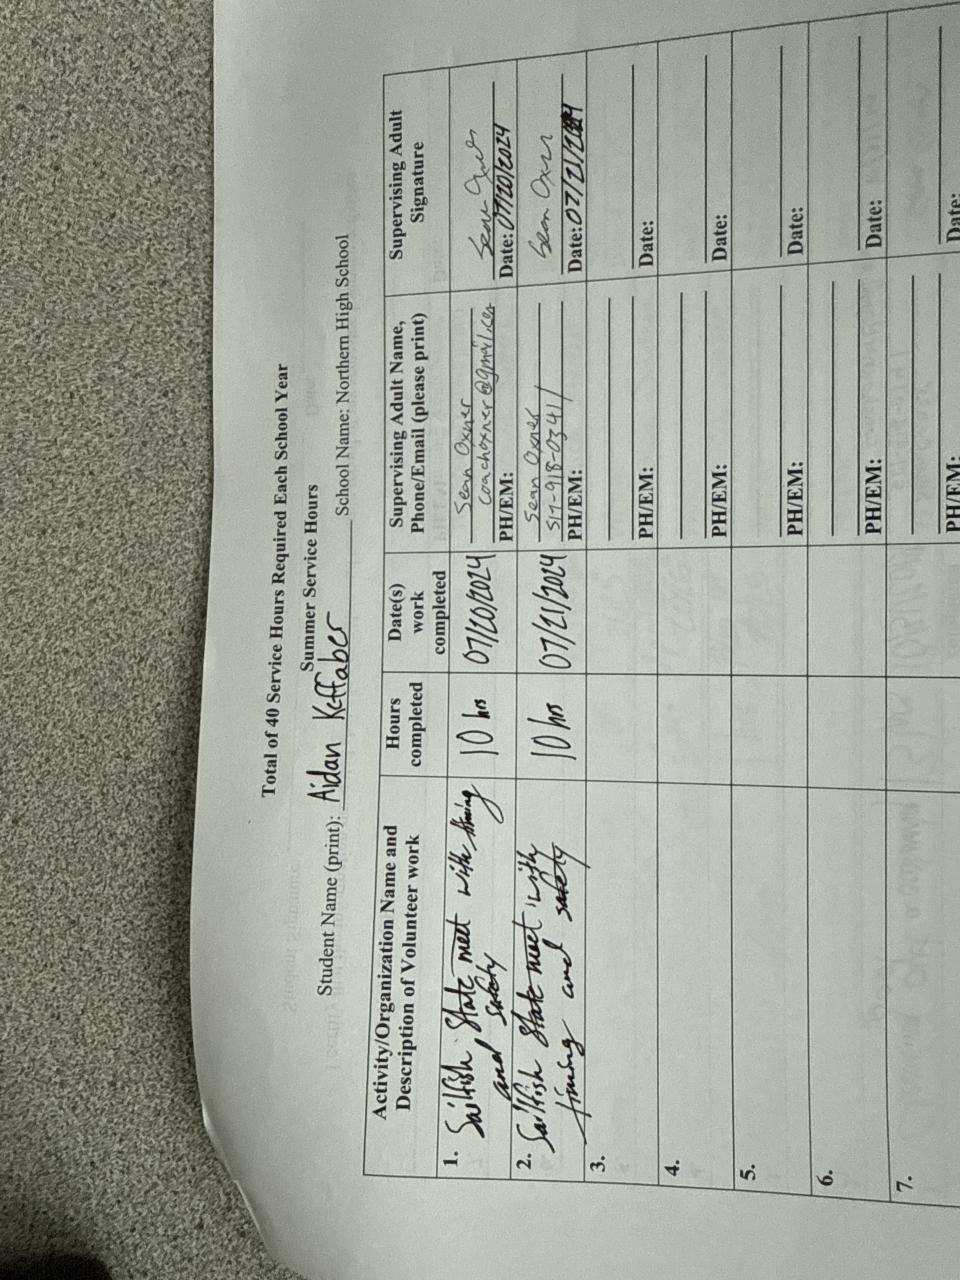 Total of 40 Service Hours Required Each School Year
Summer Service Hours
Student Name (print): Aidan Keffaber School Name: Northern High School
Activity/Organization Name and Description of Volunteer work
Hours completed
Date(s) work completed
Supervising Adult Name, Phone/Email (please print)
Supervising Adult Signature
1. Sailfish State meet with timing
and safety
10 hrs
07/20/2024
Sean Oxner
coachoxner@gmail.com
PH/EM:
Sean Oxner
Date: 07/20/2024
2. Sailfish State meet with
timing and safety
10 hrs
07/21/2024
Sean Oxner
517-918-0341
PH/EM:
Sean Oxner
Date: 07/21/2024
3.
PH/EM:
Date:
4.
PH/EM:
Date:
5.
PH/EM:
Date:
6.
PH/EM:
Date:
7.
PH/EM:
Date: